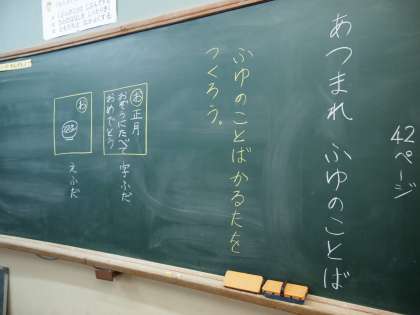 42ページ
あつまれ ふゆのことば
ふゆのことばかるたを
つくろう。
お 正月
おぞうにたべて
おめでとう
字ふだ
お
えふだ